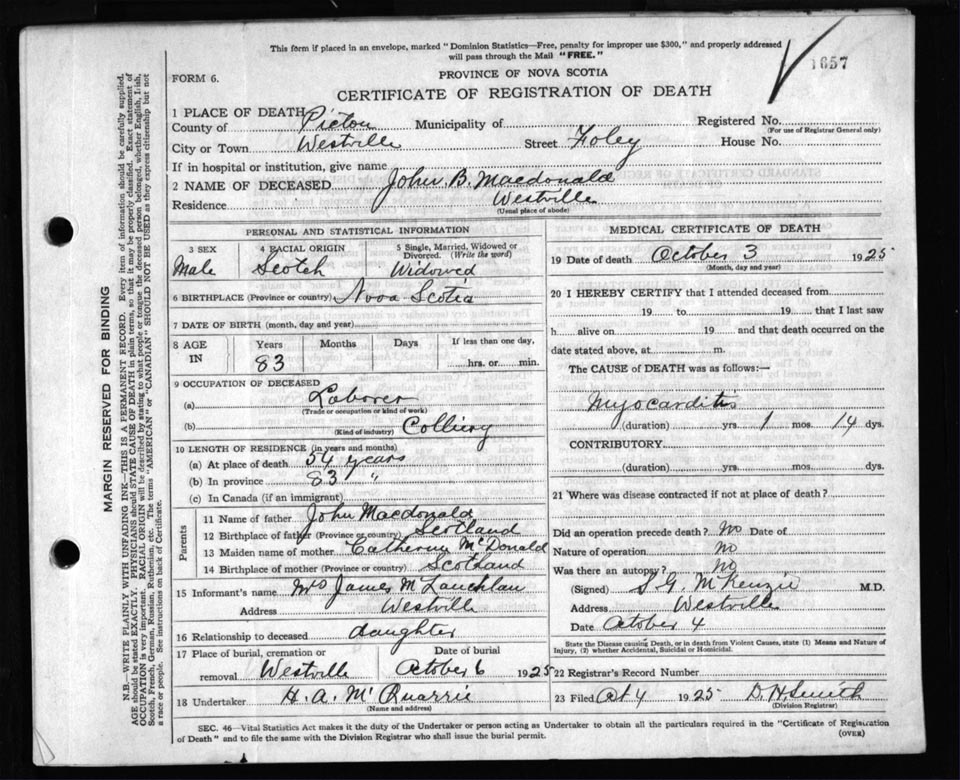 This form if placed in an envelope, marked "Dominion Statistics—Free, penalty for improper use $300," and properly addressed
will pass through the Mail "FREE."
1657
FORM 6.
PROVINCE OF NOVA SCOTIA
CERTIFICATE OF REGISTRATION OF DEATH
1 PLACE OF DEATH
County of Pictou Municipality of Registered No.
(For use of Registrar General only)
City or Town Westville Street Foley House No.
If in hospital or institution, give name
2 NAME OF DECEASED John. B. Macdonald
Residence Westville
(Usual place of abode)
PERSONAL AND STATISTICAL INFORMATION
3 SEX 4 RACIAL ORIGIN 5 Single, Married, Widowed or Divorced. (Write the word)
Male Scotch Widowed
6 BIRTHPLACE (Province or country) Nova Scotia
7 DATE OF BIRTH (month, day, and year)
8 AGE IN Years Months Days If less than one day,
83 hrs. or min.
9 OCCUPATION OF DECEASED
(a) Laborer
(Trade or occupation or kind of work)
(b) Colliery
(Kind of industry)
10 LENGTH OF RESIDENCE (in years and months)
(a) At place of death 54 years
(b) In province 83 "
(c) In Canada (if an immigrant)
Parents
11 Name of father John Macdonald
12 Birthplace of father (Province or country) Scotland
13 Maiden name of mother Catherine McDonald
14 Birthplace of mother (Province or country) Scotland
15 Informant's name Mrs James McLauchlan
Address Westville
16 Relationship to deceased daughter
17 Place of burial, cremation or removal Date of burial
Westville October 6 1925
18 Undertaker H. A. McQuarrie
(Name and address)
MEDICAL CERTIFICATE OF DEATH
19 Date of death October 3 1925
(Month, day and year)
20 I HEREBY CERTIFY that I attended deceased from
19 to 19 that I last saw
h alive on 19 and that death occurred on the
date stated above, at m.
The CAUSE of DEATH was as follows:—
Myocarditis
(duration) yrs. 1 mos. 14 dys.
CONTRIBUTORY
(duration) yrs. mos. dys.
21 Where was disease contracted if not at place of death?
Did an operation precede death? No Date of
Nature of operation No
Was there an autopsy? No
(Signed) S. G. McKenzie M.D.
Address Westville
Date October 4
State the Disease causing Death, or in death from Violent Causes, state (1) Means and Nature of
Injury, (2) whether Accidental, Suicidal or Homicidal.
22 Registrar's Record Number
23 Filed Oct 4 1925 D. H. Smith
(Division Registrar)
SEC. 46—Vital Statistics Act makes it the duty of the Undertaker or person acting as Undertaker to obtain all the particulars required in the "Certificate of Registration
of Death" and to file the same with the Division Registrar who shall issue the burial permit.
(OVER)
MARGIN RESERVED FOR BINDING
N.B.—WRITE PLAINLY WITH UNFADING INK—THIS IS A PERMANENT RECORD. Every item of information should be carefully supplied.
AGE should be stated EXACTLY. PHYSICIANS should STATE CAUSE OF DEATH in plain terms, so that it may be properly classified. Exact statement of
OCCUPATION is very important. RACIAL ORIGIN will be described by stating to what people or tongue the deceased person belonged, whether English, Irish,
Scotch, French, German, Russian, Ruthenian, etc. The terms "AMERICAN" or "CANADIAN" SHOULD NOT BE USED as they express citizenship but not
a race or people. See instructions on back of Certificate.